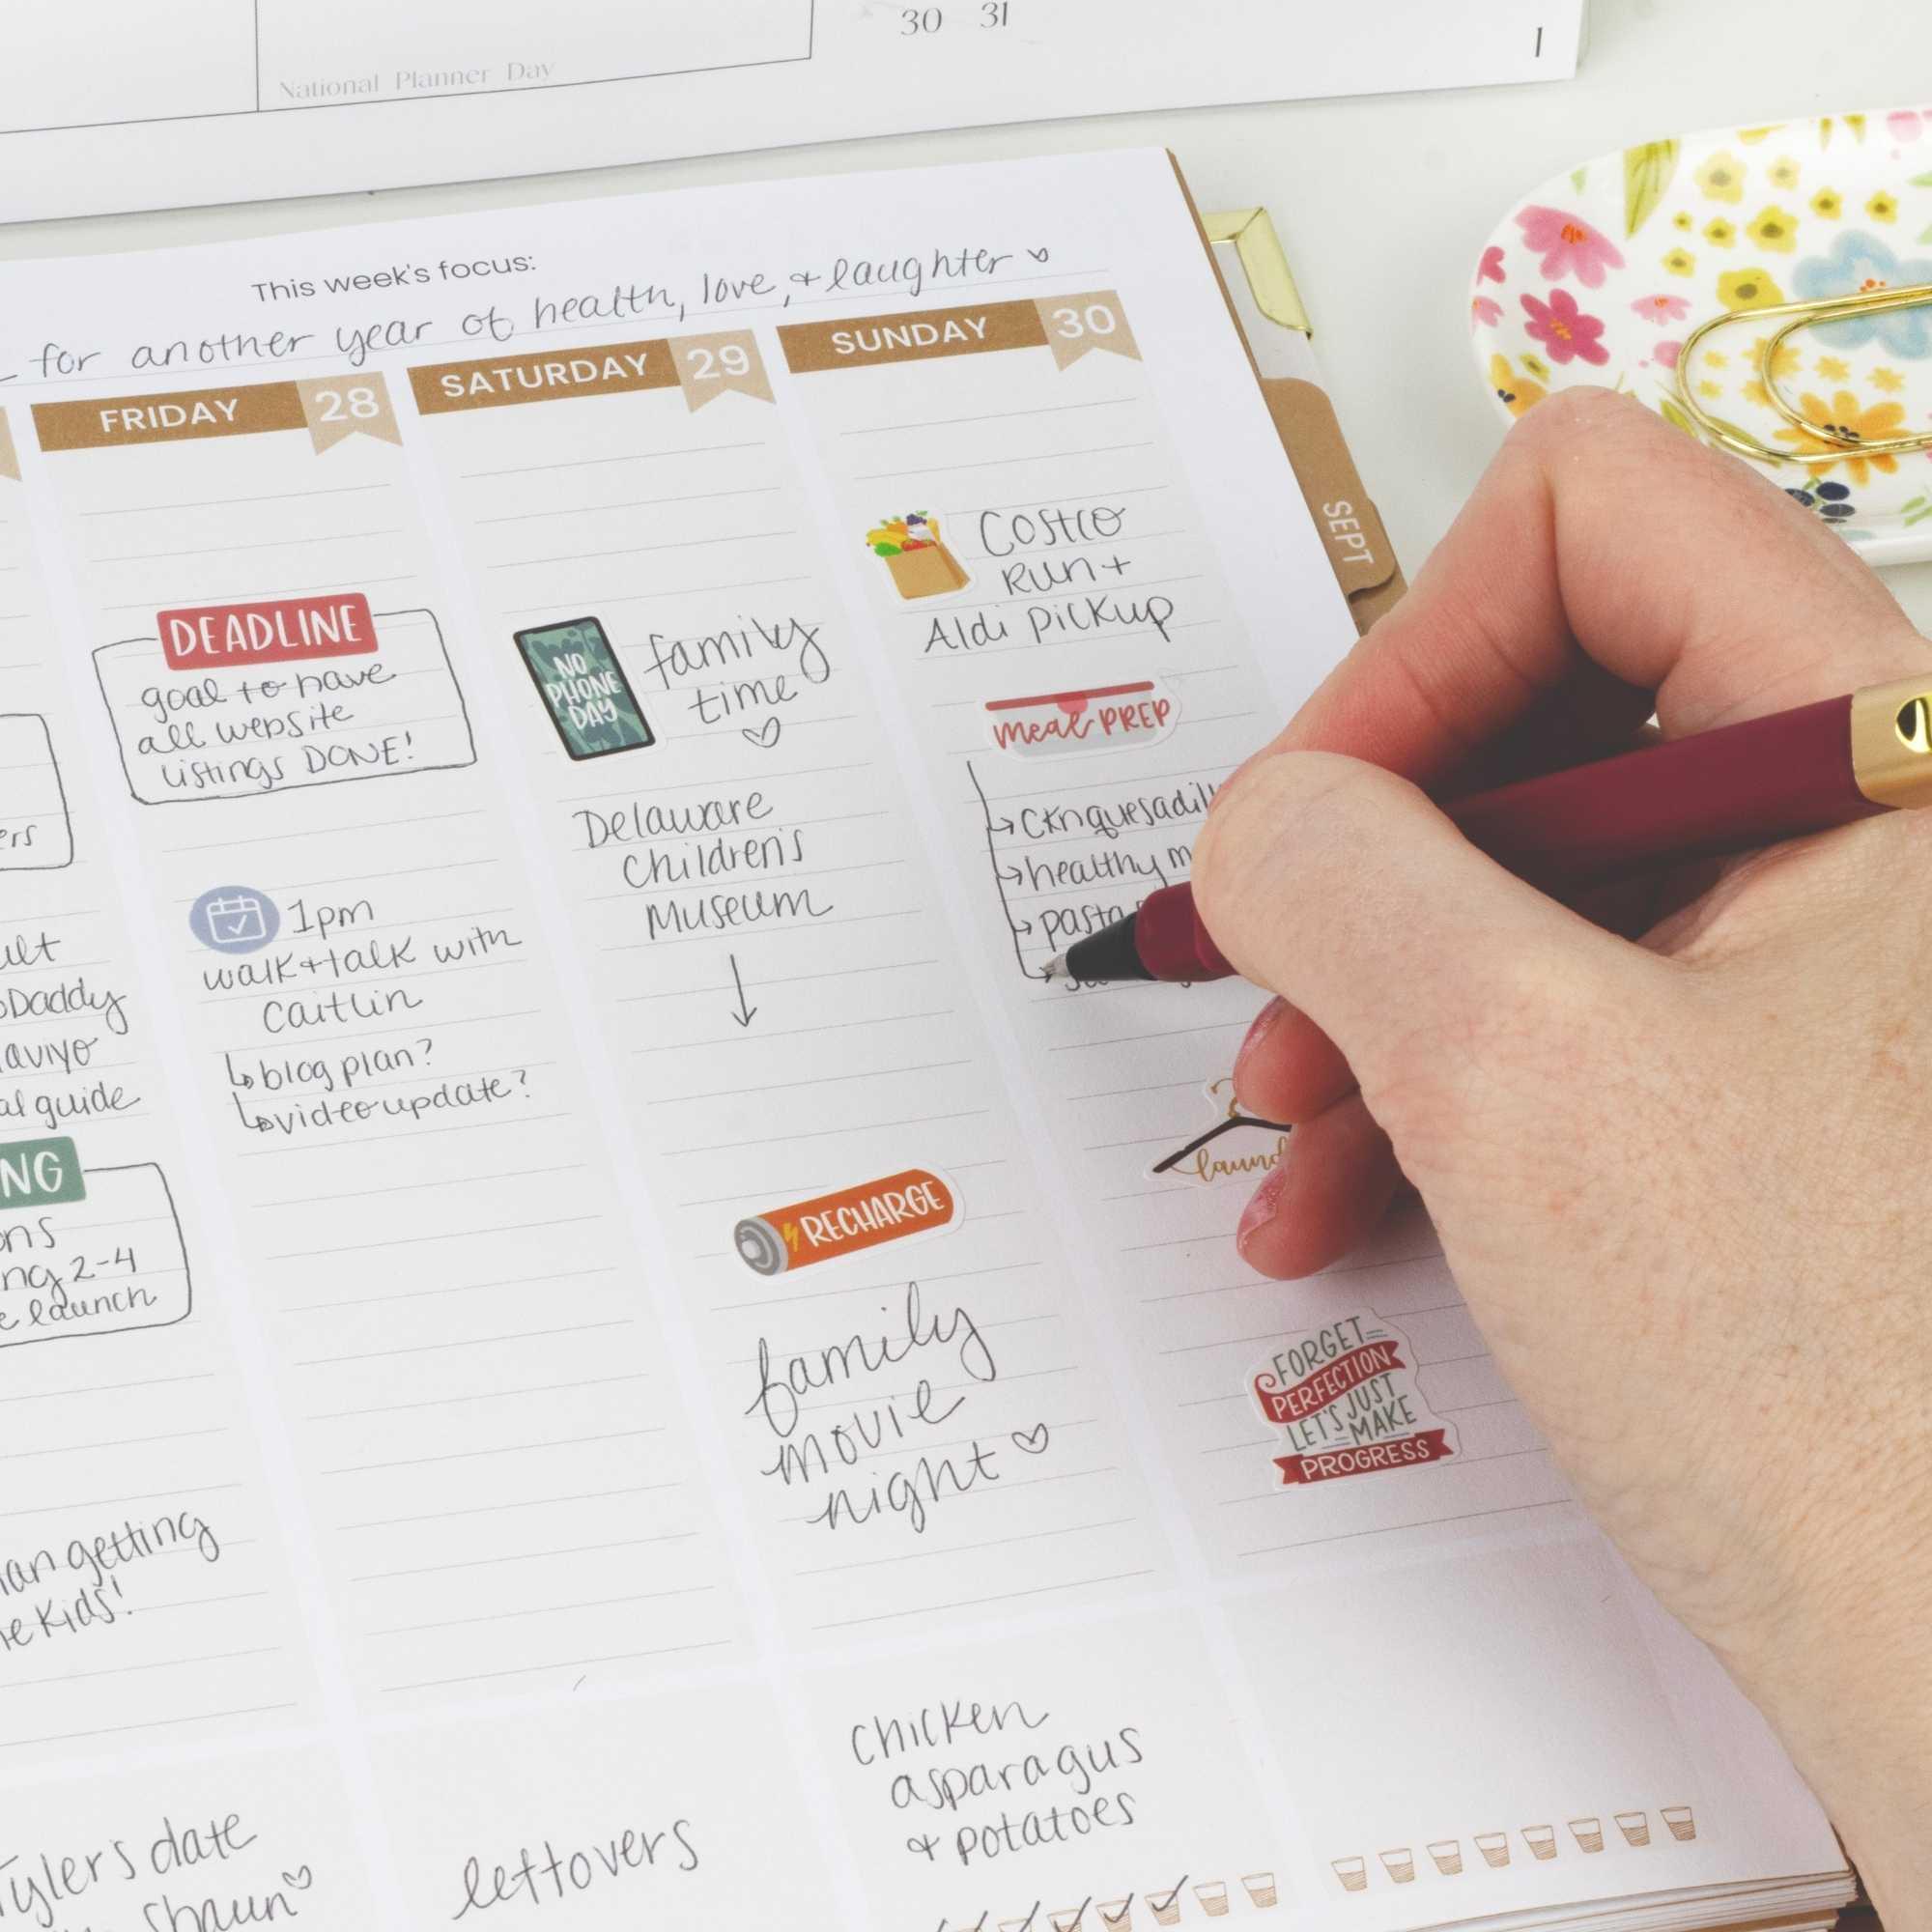 30 31
National Planner Day
This week's focus:
for another year of health, love, + laughter
FRIDAY 28
SATURDAY 29
SUNDAY 30
SEPT
Daddy
guide
NG
2-4
launch
getting
Kids!
Tyler's date
Shaun
DEADLINE
goal to have
all website
listings DONE!
1pm
walk + talk with
Caitlin
blog plan?
video update?
leftovers
NO
PHONE
DAY
family
time
Delaware
Children's
Museum
RECHARGE
family
movie
night
chicken
asparagus
+ potatoes
Costco
Run +
Aldi Pickup
meal PREP
healthy
pasta
FORGET
PERFECTION
LET'S JUST
MAKE
PROGRESS